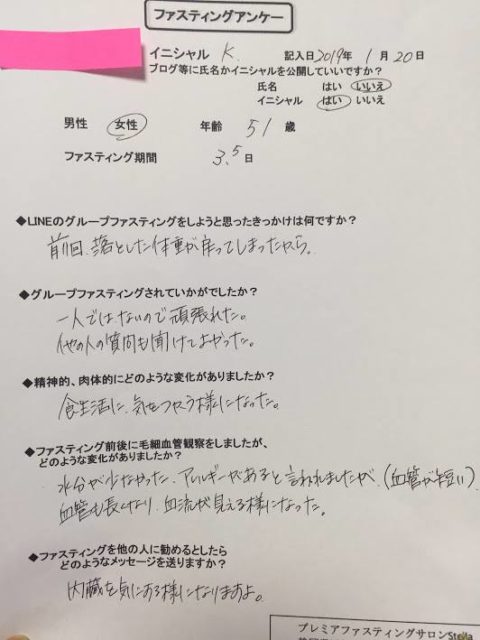 ファスティングアンケー
イニシャル K. 記入日 2019年 1月 20日
ブログ等に氏名かイニシャルを公開していいですか？
氏名 はい いいえ
イニシャル はい いいえ
男性 女性 年齢 51 歳
ファスティング期間 3.5 日
◆LINEのグループファスティングをしようと思ったきっかけは何ですか？
前回、落とした体重が戻ってしまったから。
◆グループファスティングされていかがでしたか？
一人ではないので頑張れた。
他の人の質問も聞けてよかった。
◆精神的、肉体的にどのような変化がありましたか？
食生活に、気をつかう様になった。
◆ファスティング前後に毛細血管観察をしましたが、
どのような変化がありましたか？
水分が少なかった、アレルギーがあると言われましたが、(血管が短い)
血管も長くなり、血流が見える様になった。
◆ファスティングを他の人に勧めるとしたら
どのようなメッセージを送りますか？
内臓を気にある様になりますよ。
プレミアファスティングサロンStella